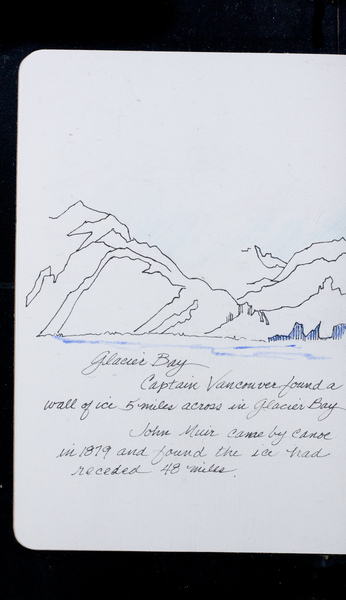 Glacier Bay
Captain Vancouver found a
wall of ice 5 miles across in Glacier Bay
John Muir came by canoe
in 1879 and found the ice had
receded 48 miles.